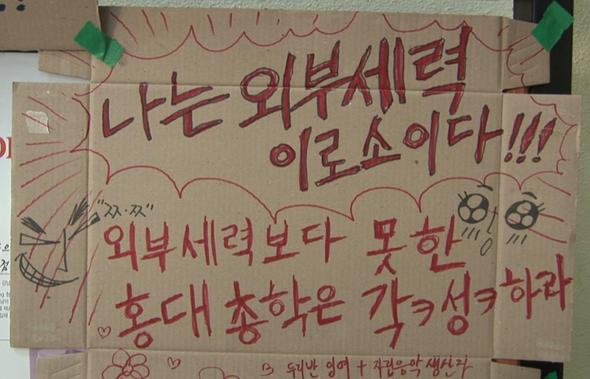 나는 외부세력
이로소이다!!!
"ㅉ.ㅉ"
외부세력보다 못한
홍대 총학은 각ㅋ성ㅋ하라
두리반 잉여 + 자립음악 생산자